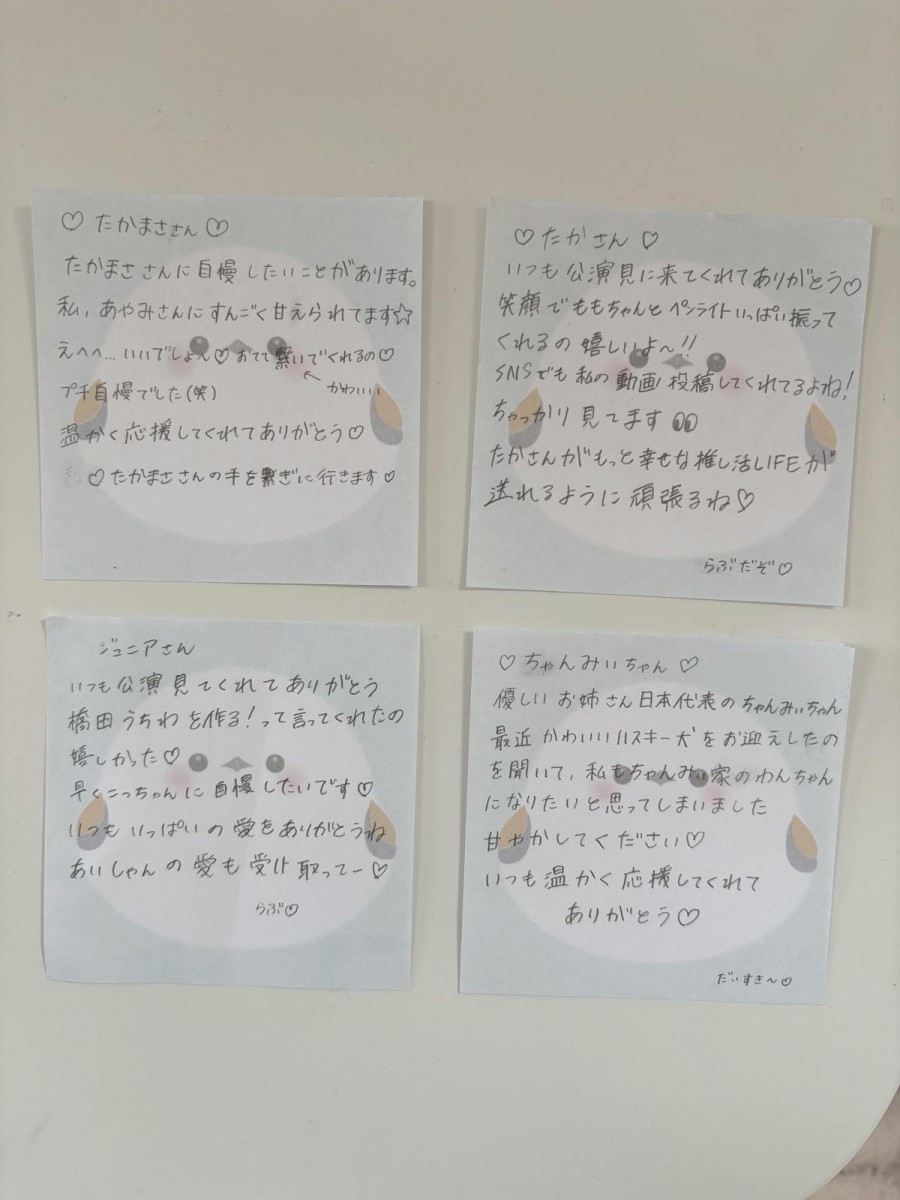 ♡ たかまささん ♡
たかまささんに自慢したいことがあります。
私、あやみさんにすんごく甘えられてます☆
えへへ…いいでしょ〜♡おてて繋いでくれるの♡
↖かわいい
プチ自慢でした(笑)
温かく応援してくれてありがとう♡
♡たかまささんの手を繋ぎに行きます♡
♡ たかさん ♡
いつも公演見に来てくれてありがとう♡
笑顔でももちゃんとペンライトいっぱい振って
くれるの嬉しいよ〜!!
SNSでも私の動画投稿してくれてるよね!
ちゃっかり見てます👀
たかさんがもっと幸せな推し活LIFEが
送れるように頑張るね♡
らぶだぞ♡
ジュニアさん
いつも公演見てくれてありがとう
橋田うちわを作る!って言ってくれたの
嬉しかった♡
早くこっちゃんに自慢したいです♡
いつもいっぱいの愛をありがとうね
あいしゃんの愛も受け取ってー♡
らぶ♡
♡ ちゃんみぃちゃん ♡
優しいお姉さん日本代表のちゃんみぃちゃん
最近かわいいハスキー犬をお迎えしたの
を聞いて、私もちゃんみぃ家のわんちゃん
になりたいと思ってしまいました
甘やかしてください♡
いつも温かく応援してくれて
ありがとう♡
だいすき〜♡